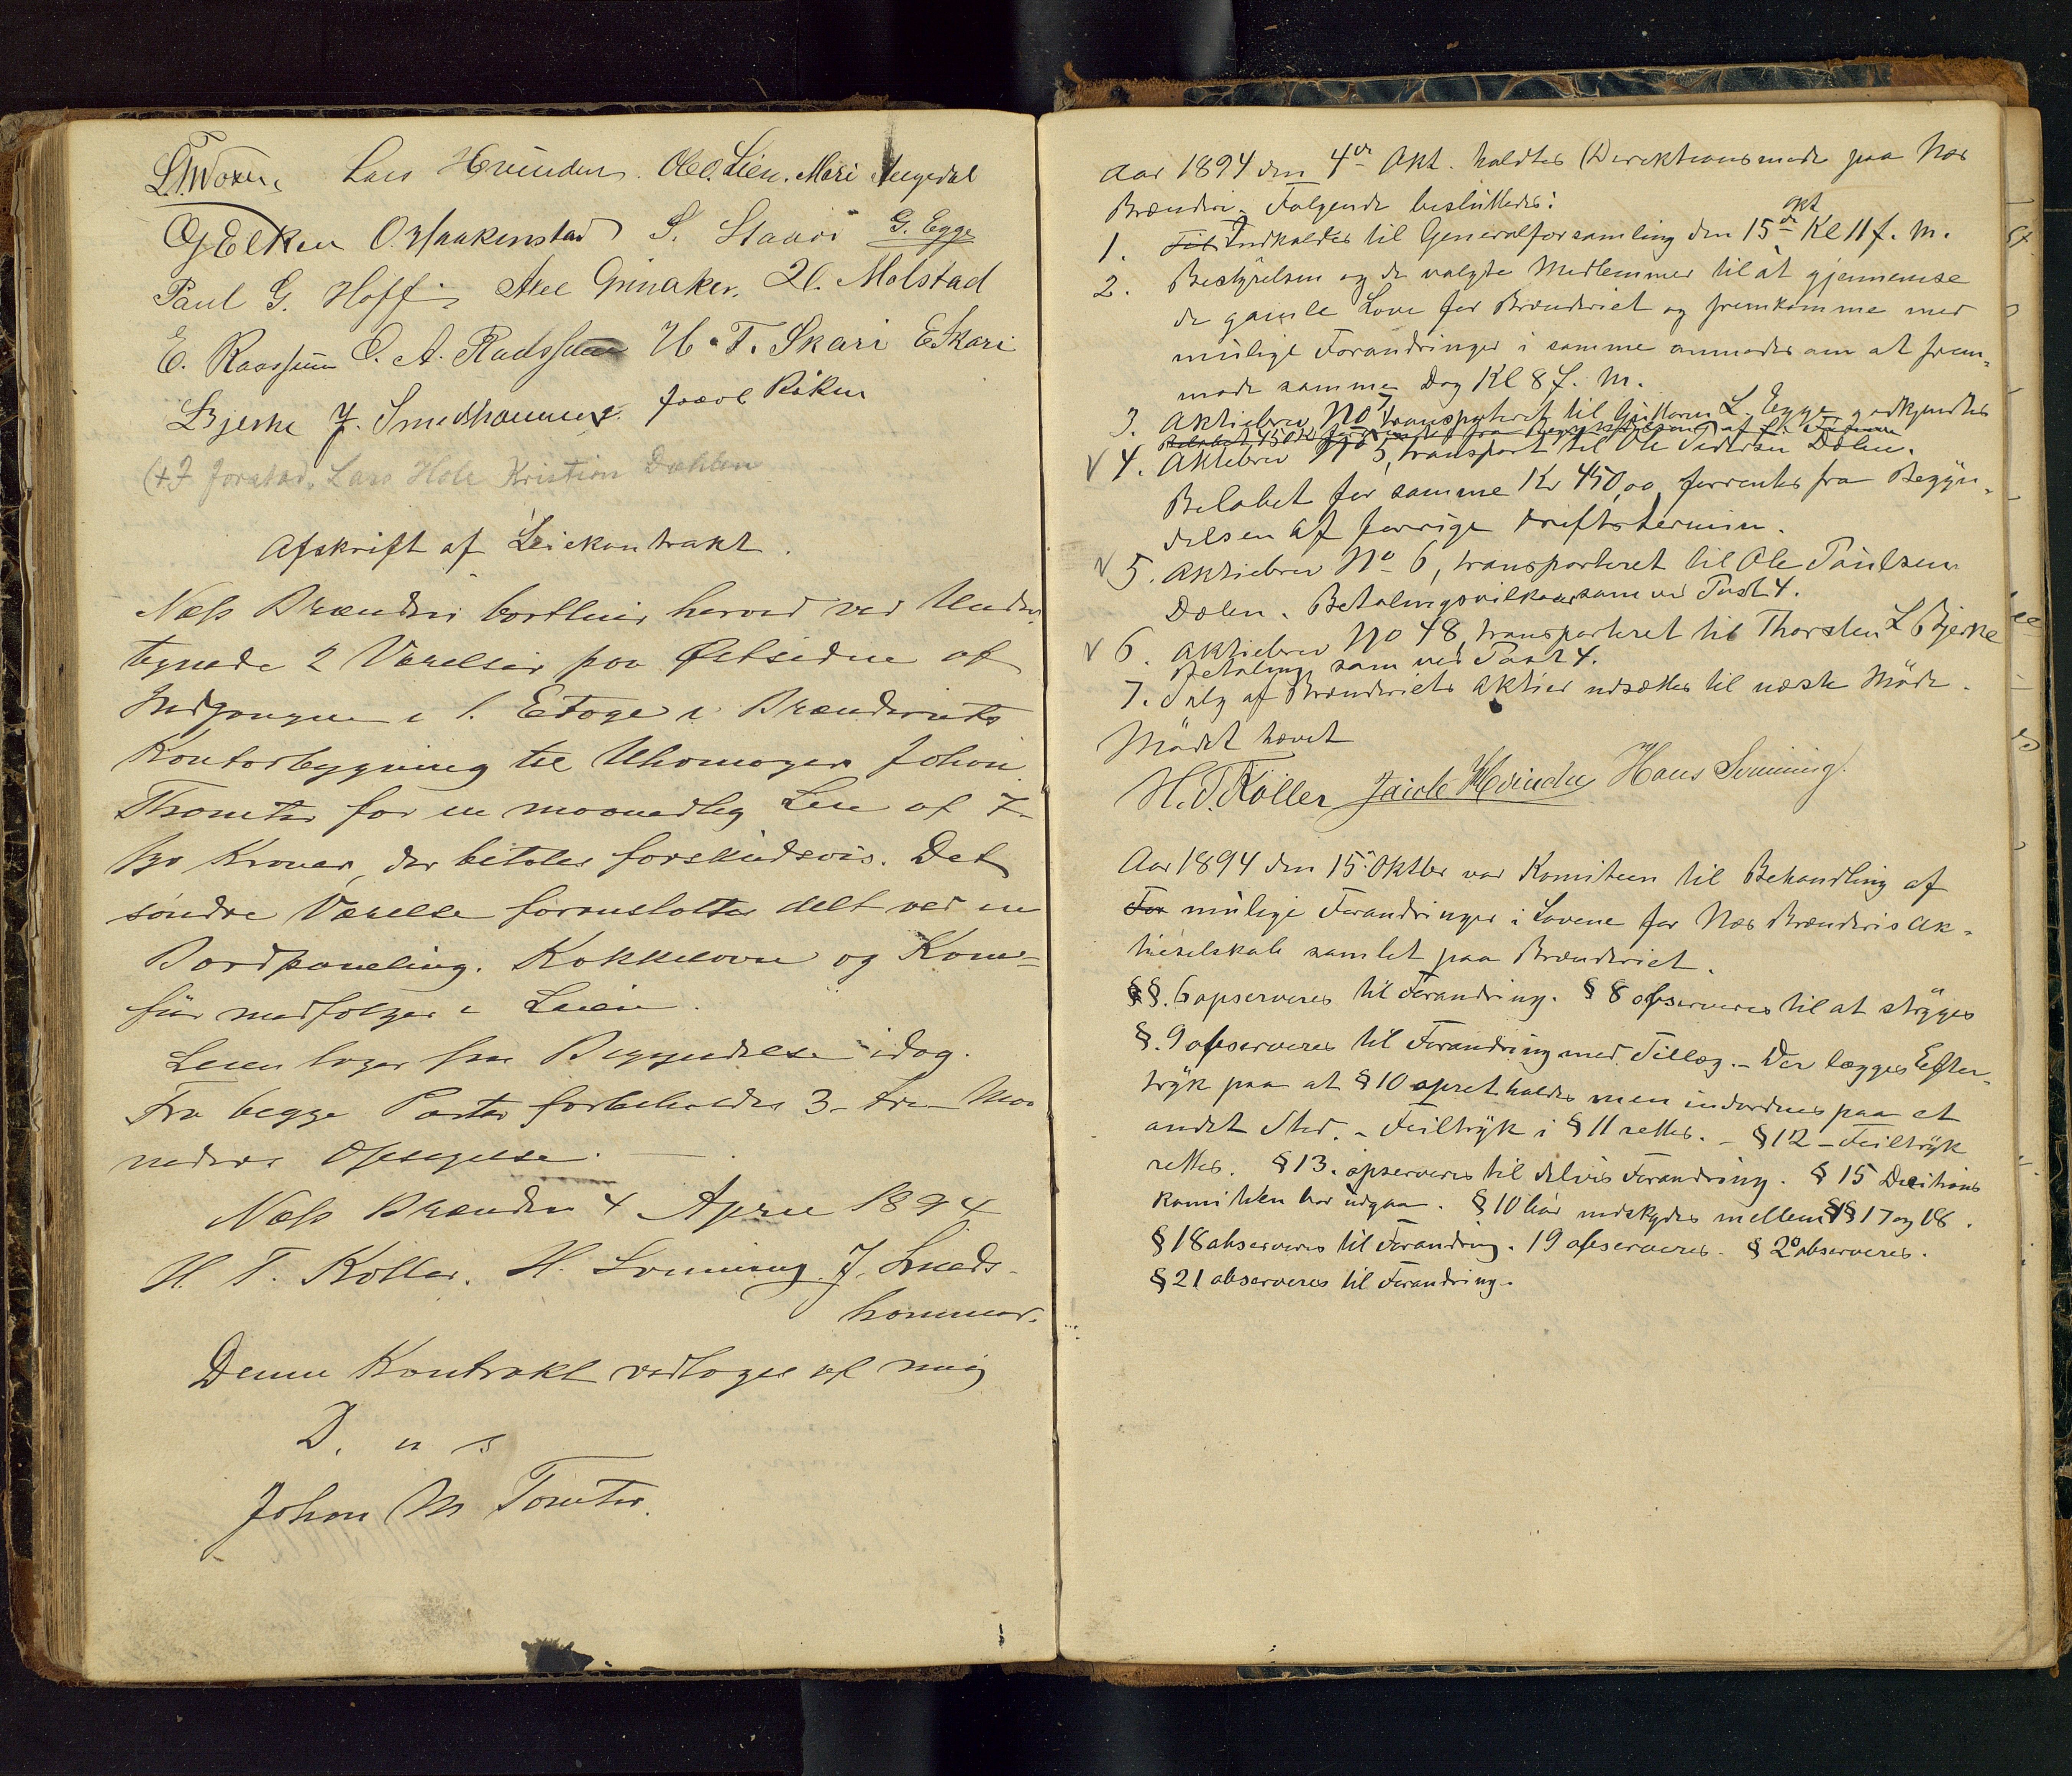 Lars Hvinden. Ole O. Lien. Mari Augedal
G Elken O. Haakenstad S. Staxri G. Egge
Paul G. Hoff Axel Grinaker. H. Molstad
E. Raassum O. A. Radssum H. T. Skari E Skari
L Bjerke J. Smedshammer. Joael Røken
Jorstad. Lars Hole Kristian Dahlen
Afskrift af Leiekontrakt.
Næss Brænderi bortleier herved ved Under
tegnede 2 Værelser paa Østsiden af
Indgangen i 1. Etage i Brænderiets
Kontorbygning til Uhrmager Johan
Thomter for en maanedlig Leie af 7-
syv Kroner, der betales forskudsvis. Det
søndre Værelse foranstaltes delt ved en
Bordpaneling. Kakkelovn og Kom=
fur medfølger i Leien.
Leien tager sin Begyndelse idag.
Fra begge Parter forbeholdes 3- tre- Maa
neders Opsigelse.
Næss Brænderi 4 April 1894
H. T. Koller. H. Sonning. J. Smeds-
hammer.
Denne Kontrakt vedtages af mig
D. u s
Johan M Tomter.
Aar 1894 den 4de Okt. holdtes Direktionsmøde paa Næs
Brænderi. Følgende besluttedes:
1. Til Indkaldes til Generalforsamling den 15de Okt Kl 11 f. M.
2. Bestyrelsen og de valgte Medlemmer til at gjennemse
de gamle Love for Brænderiet og fremkomme med
mulige Forandringer i samme anmodes om at frem-
møde samme Dag Kl 8 f. M.
3. Aktiebrev No 7, transporteret til Guttorm L. Egge, godkjendtes
4. Aktiebrev No 5, transport til Ole Pedersen Dølen.
Beløbet for samme Kr 450,00 forrentes fra Begyn-
delsen af forrige Driftstermin.
5. Aktiebrev No 6, transporteret til Ole Paulsen
Dølen. Betalingsvilkaar som ved Post 4.
6. Aktiebrev No 48, transporteret til Thorsten L Bjerke
Betaling som ved Post 4.
7. Salg af Brænderiets Aktier udsættes til næste Møde.
Mødet hævet
H. T. Koller Jacob Hvinden Hans Sonning.
Aar 1894 den 15. Oktber var Komiteen til Behandling af
For mulige Forandringer i Lovene for Næs Brænderis Ak-
tieselskab samlet paa Brænderiet.
§§. 6 opserveres til Forandring. § 8 observeres til at strøges
§. 9 observeres til Forandring med Tillæg. - Der lægges Efter-
tryk paa at § 10 opretholdes men indordnes paa et
andet Sted. - Feiltryk i § 11 rettes. - § 12 - Feiltryk
rettes. § 13. opserveres til delvis Forandring. § 15 Decitions
komiteen bør udgaa. § 10 bør indskydes mellem §§ 17 og 18.
§ 18 observeres til Forandring. 19 observeres. § 20 observeres.
§ 21 observeres til Forandring.